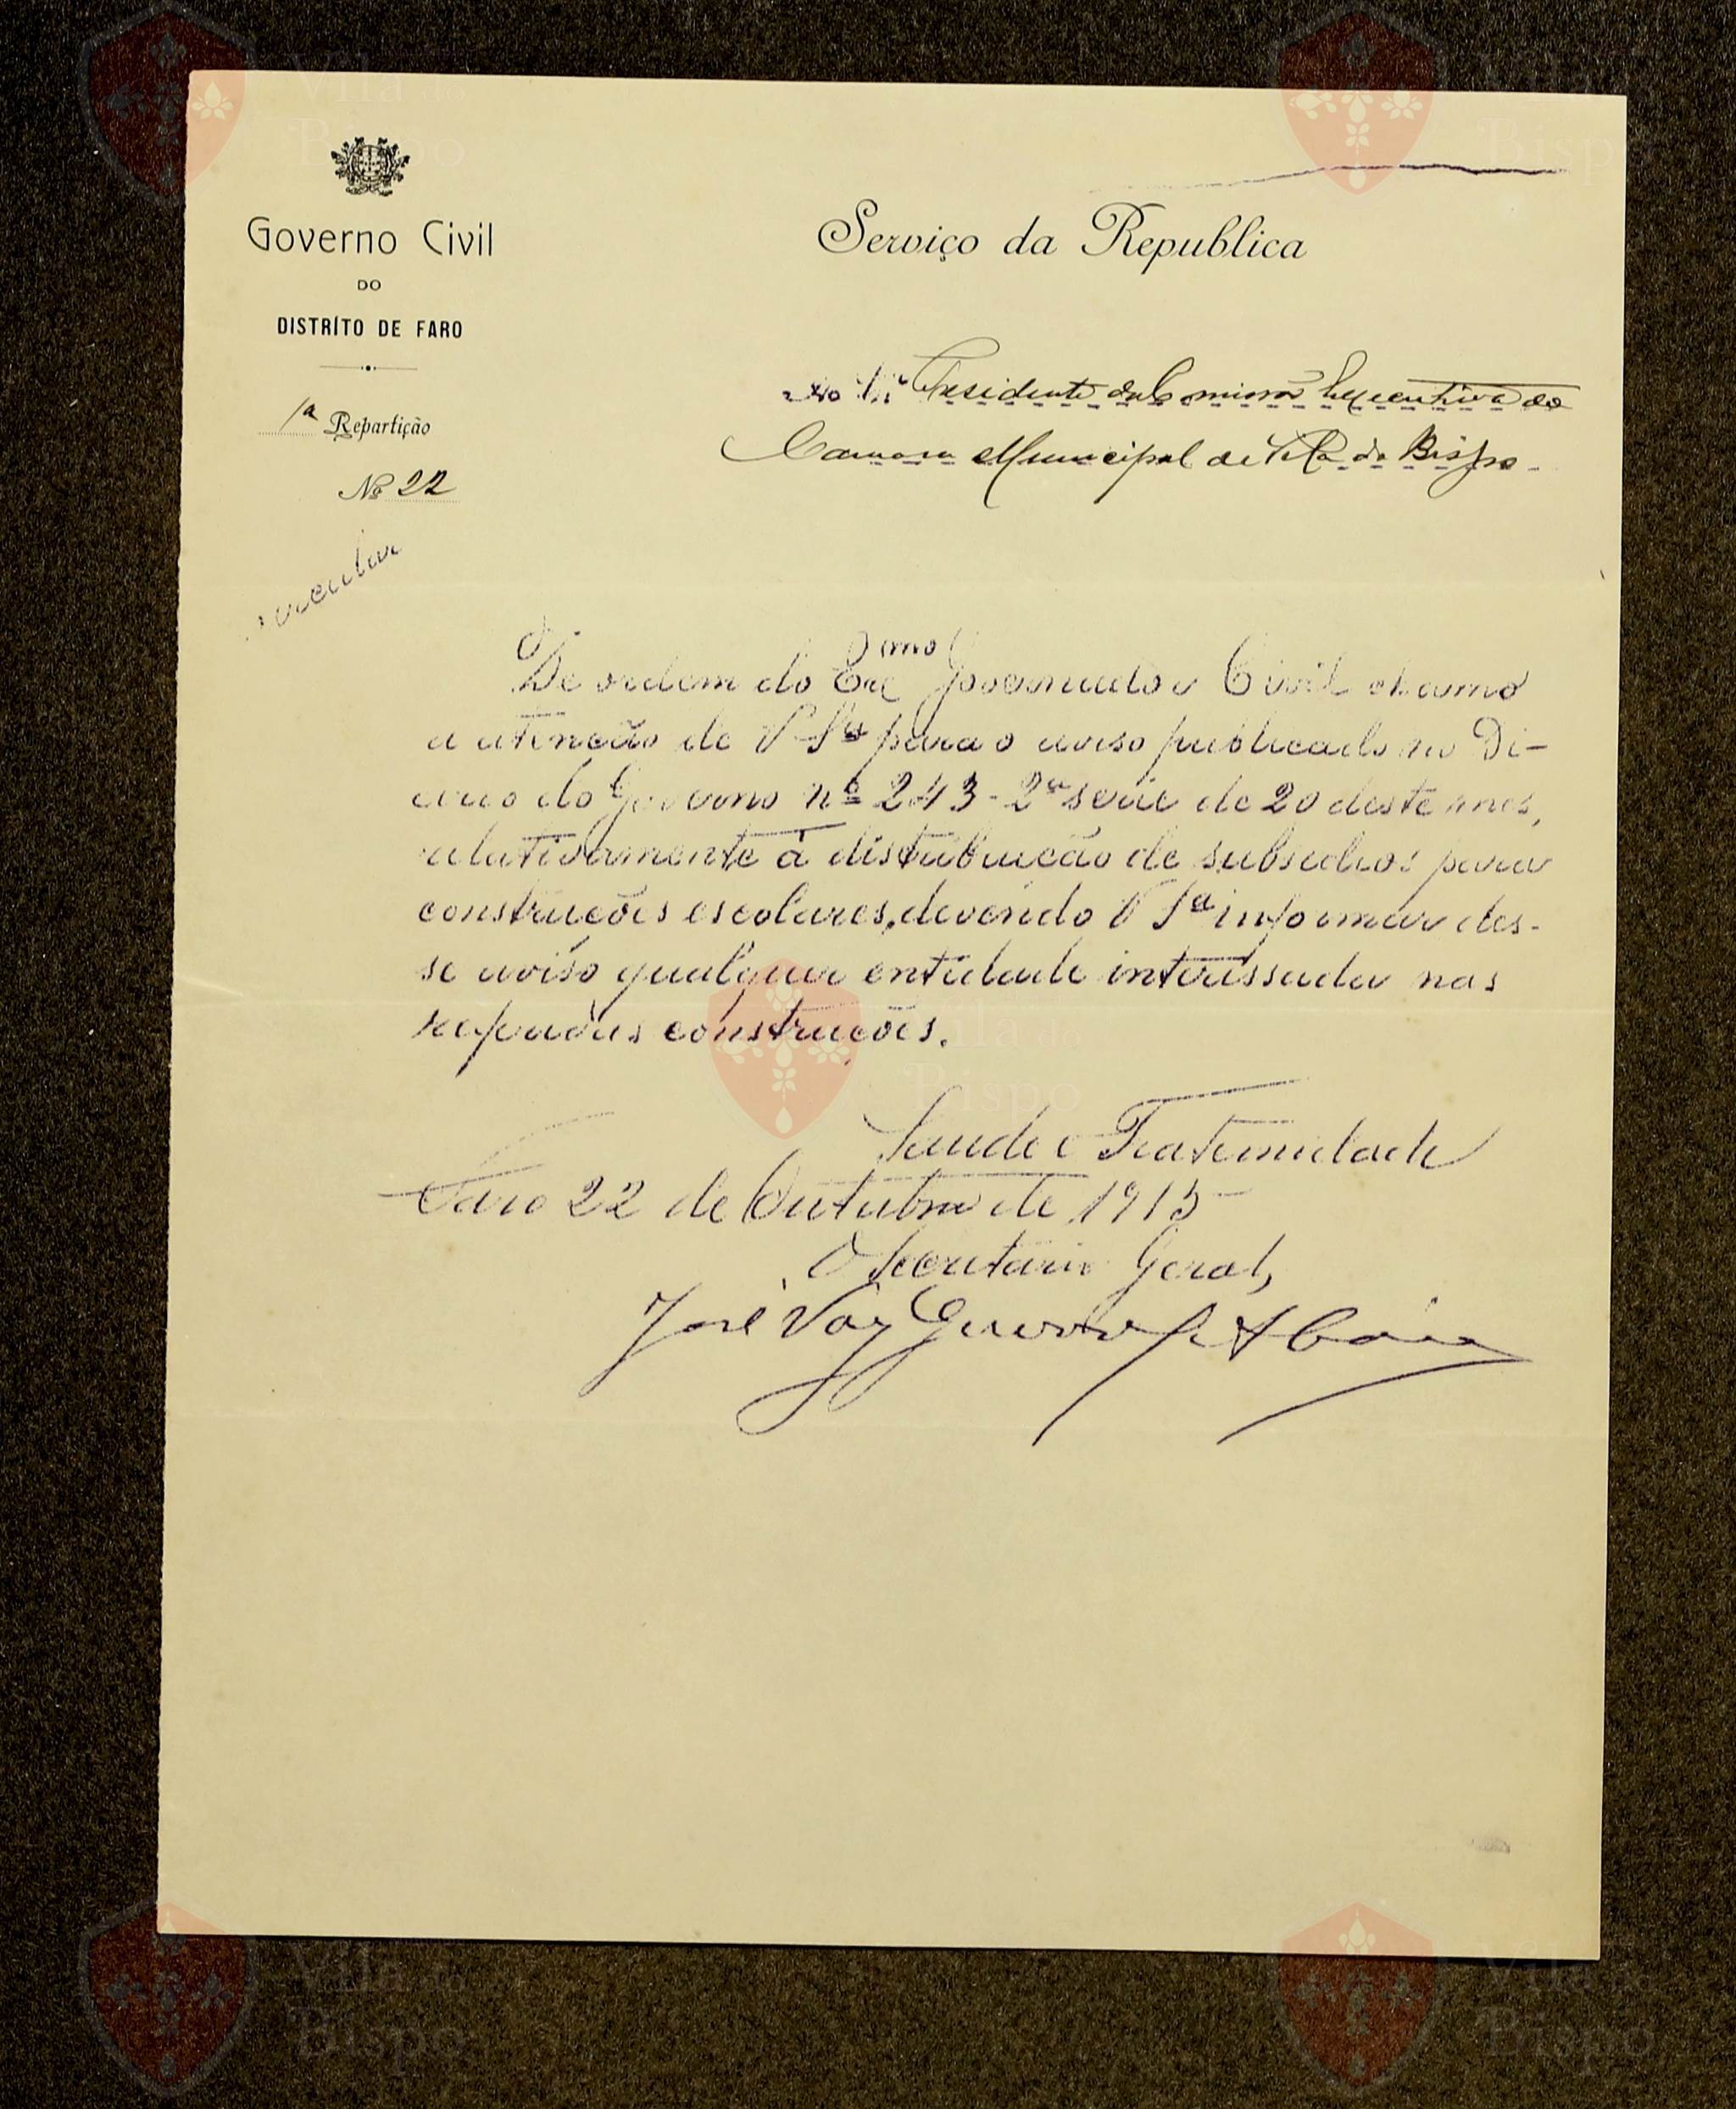 Governo Civil
DO
DISTRÍTO DE FARO
1ª Repartição
Nº 22
Circular
Serviço da Republica
Ao Snr Presidente da Comissão Executiva da
Camara Municipal de Vila do Bispo
De ordem do Excmo Governador Civil chamo
a atenção de V. Sª para o aviso publicado no Di-
ario do Governo nº 243 - 2ª serie de 20 deste mes,
relativamente á distribuição de subsidios para
construções escolares, devendo V Sª informar des-
se aviso qualquer entidade interessada nas
referidas construções.
Saude e Fraternidade
Faro 22 de Outubro de 1915
O Secretario Geral,
José Vaz Guerreiro
Vila do
Bispo